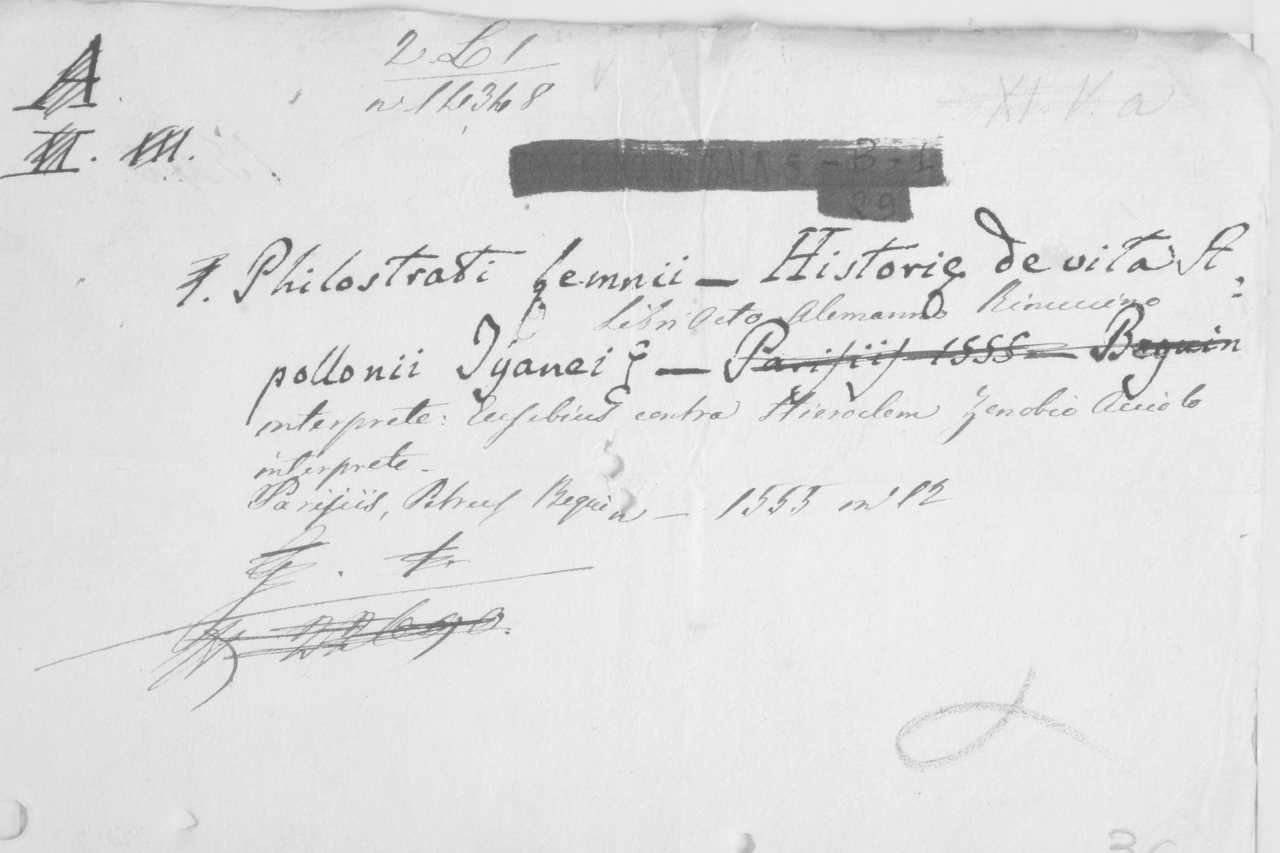 A.
2 L 1
XI. V. a
VI. VII.
SALA 5 - B - 1
29
Philostrati Lemnii — Historię de vita A:
Libri Octo Alemanno Rinuccino
pollonii Tyanei — Parisiis 1555 — Beguin
interprete: Eusebius contra Hieroclem Zenobio Acciolo
interprete.
Parisiis, Petrus Beguin — 1555 in 12